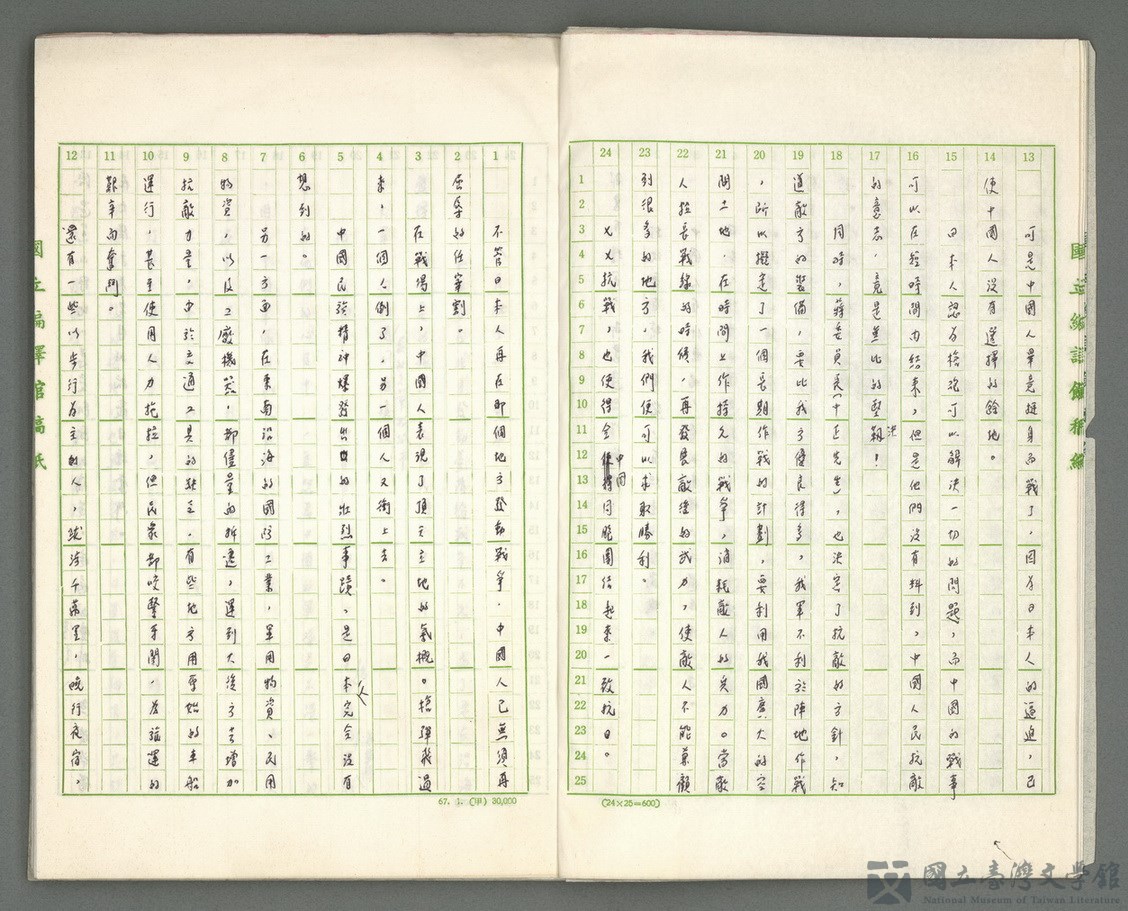 13 14 15 16 17 18 19 20 21 22 23 24
1 2 3 4 5 6 7 8 9 10 11 12 13 14 15 16 17 18 19 20 21 22 23 24 25
可是中國人畢竟挺身而戰了,因為日本人的逼迫,已
使中國人沒有選擇的餘地。
日本人認為槍砲可以解決一切的問題,而中國的戰事
可以在短時間內結束,但是他們沒有料到,中國人民抗敵
的意志,竟是無比的堅決!
同時,蔣委員長(中正先生),也決定了抗敵的方針,知
道敵方的裝備,要比我方優良得多,我軍不利於陣地作戰
,所以擬定了一個長期作戰的計劃,要利用我國廣大的空
間土地,在時間上作持久的戰爭,消耗敵人的兵力。當敵
人拉長戰線的時候,再發展敵後的武力,使敵人不能兼顧
到很多的地方,我們便可以求取勝利。
乂乂抗戰,也使得全中國同胞團結起來一致抗日。
(24×25=600)
1 2 3 4 5 6 7 8 9 10 11 12
不管日本人再在那個地方發動戰爭,中國人已無須再
屈辱的任宰割。
在戰場上,中國人表現了頂天立地的氣概。槍彈飛過
來,一個人倒了,另一個人又衝上去。
中國民族精神爆發出的壯烈事蹟,是日本人完全沒有
想到的。
另一方面,在東南沿海的國防工業,軍用物資、民用
物資,以及工廠機器,都儘量的拆遷,運到大後方去增加
抗敵力量,由於交通工具的缺乏,有些地方用原始的車船
運行,甚至使用人力拖拉,但民眾都咬緊牙關,為搬運的
艱辛而奮鬥。
還有一些以步行為主的人,跋涉千萬里,曉行夜宿,
國立編譯館稿紙
67. 1. (甲) 30,000
國立臺灣文學館
National Museum of Taiwan Literature